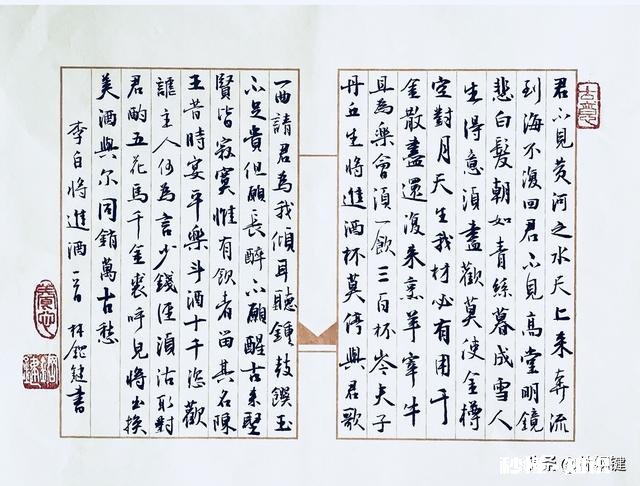 君不见黄河之水天上来奔流
到海不复回君不见高堂明镜
悲白髮朝如青絲暮成雪人
生得意須盡歡莫使金樽
空對月天生我材必有用千
金散盡還復来烹羊宰牛
且為樂會須一飲三百杯岑夫子
丹丘生將進酒杯莫停與君歌
一曲請君為我傾耳聽鍾鼓饌玉
不足貴但願長醉不願醒古来聖
賢皆寂寞惟有飲者留其名陳
王昔時宴平樂斗酒十千恣歡
謔主人何為言少錢徑須沽取對
君酌五花馬千金裘呼兒將出換
美酒與尔同銷萬古愁
李白將進酒一首
鍵書